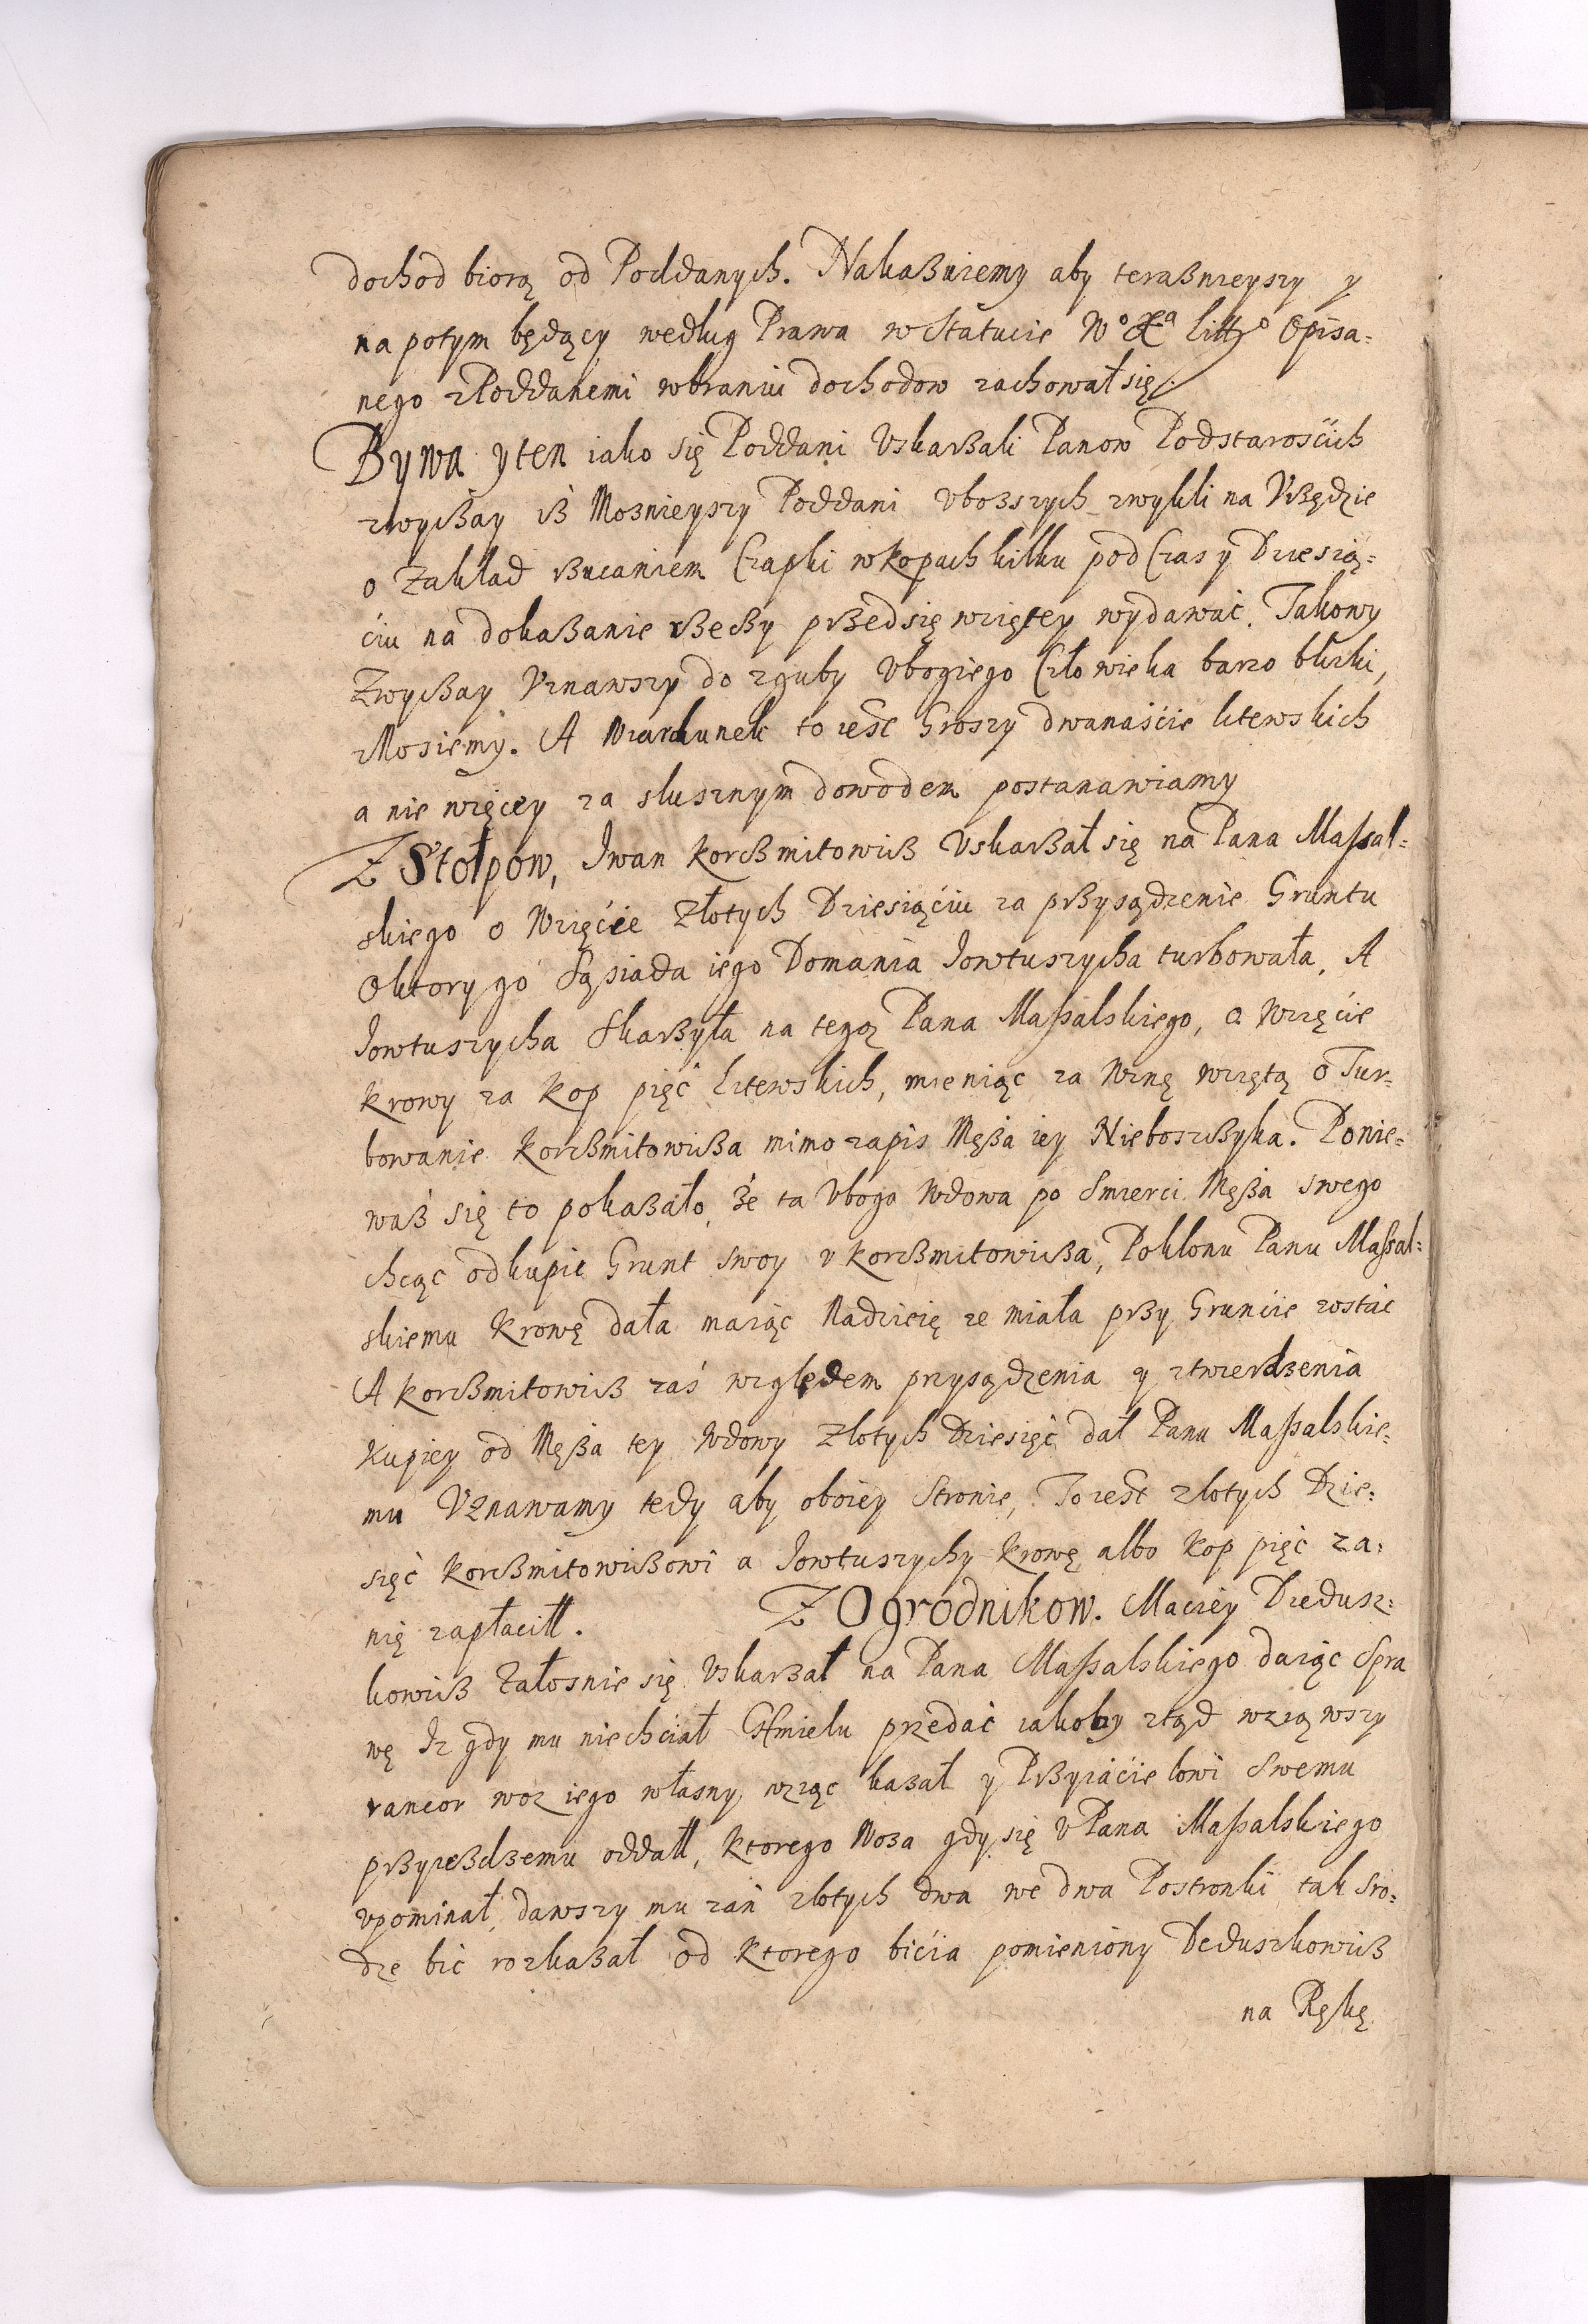 dochod biorą od Poddanych. Nakaßuiemy aby teraßnieyszy y
na potym będący według Prawa w Statucie Wº Xª Littº Opisa=
nego z Poddanemi w braniu dochodow zachował się.
Bywa y ten iako się Poddani Uskarßali Panow Podstarościch
zwyczay iß Moznieyszy Poddani Vbozszych zwykli na Vrzędzie
o Zakład Rzucaniem Czapki w kopach kilku pod Czas y Dziesią=
ciu na dokaßanie Rzeczy przedsięwziętey wydawać. Takowy
Zwyczay Vznawszy do zguby Vbogiego Człowieka barzo bliski,
znosiemy. A Wiardunek to iest Groszy dwanaście litewskich
a nie więcey za słusznym dowodem postanawiamy
Z Stołpow, Iwan Korczmitowicz Vskarßał się na Pana Massal=
skiego o Wzięcie Złotych Dziesiąciu za przysądzenie Gruntu
O ktory go Sąsiada iego Domania Jowtuszycha turbowała, A
Jowtuszycha Skarżyła na tegoz Pana Massalskiego, o Wzięcie
krowy za kop pięć Litewskich, mieniąc za Winę wziętą o Tur=
bowanie Korczmitowicza mimo zapis Męża iey Nieboszczyka. Ponie=
waß się to pokaßało, że ta Vboga Wdowa po Smierci Męża swego
chcąc odkupić Grunt swoy v Korczmitowicza, Pokłonu Panu Massal=
skiemu krowę dała maiąc Nadzieię ze miała przy Gruncie zostać
A Korczmitowicz zaś względem przysądzenia y ztwierdzenia
Kupiey od Męża tey Wdowy Złotych Dziesięć dał Panu Massalskie=
mu Vznawamy tedy aby oboiey Stronie, To iest złotych Dzie=
sięć Korczmitowiczowi a Jowtuszychy krowę albo kop pięć za=
nię zapłacił. Z Ogrodnikow. Maciey Dzedusz=
kowicz Załosnie się Vskarżał na Pana Massalskiego daiąc Spra
wę Iz gdy mu niechciał Chmielu przedać iakoby ztąd wziąwszy
rancor woz iego własny wziąć kazał y Przyiacielowi Swemu
przyieżdżemu oddał, ktorego Woza gdy się v Pana Massalskiego
vpominał, dawszy mu zań złotych dwa we dwa Postronki tak sro=
dze bić rozkazał od ktorego bicia pomieniony Deduszkowicz
na Rękę